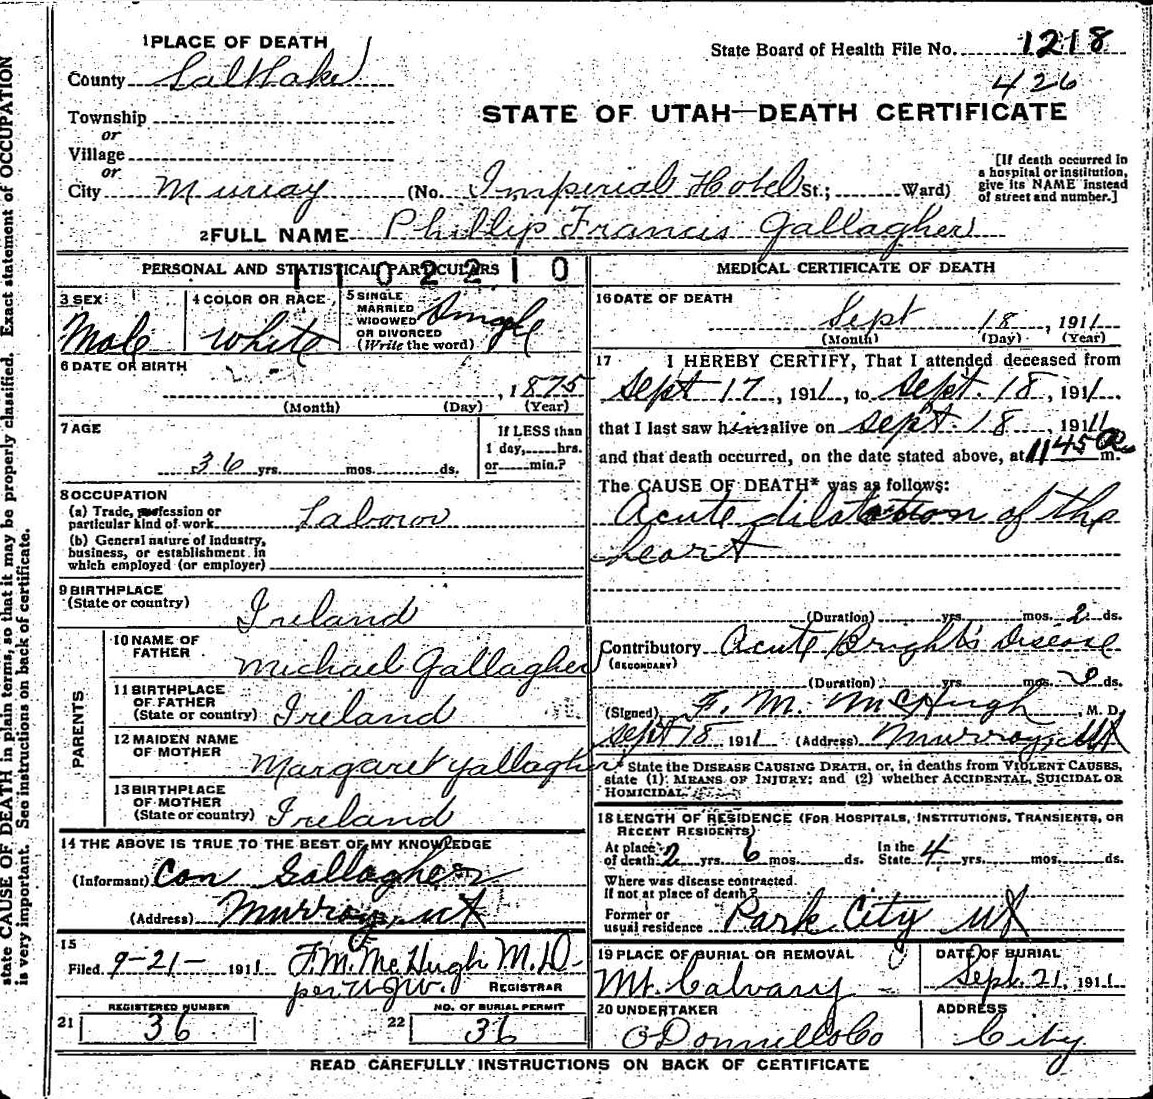 state CAUSE OF DEATH in plain terms, so that it may be properly classified. Exact statement of OCCUPATION
is very important. See instructions on back of certificate.
1 PLACE OF DEATH
State Board of Health File No. 1218
County Salt Lake
426
STATE OF UTAH—DEATH CERTIFICATE
Township
or
Village
or
City Murray (No. Imperial Hotel St.; Ward)
[If death occurred in
a hospital or institution,
give its NAME instead
of street and number.]
2 FULL NAME Phillip Francis Gallagher
PERSONAL AND STATISTICAL PARTICULARS
1102210
3 SEX
Male
4 COLOR OR RACE
White
5 SINGLE
MARRIED
WIDOWED
OR DIVORCED
(Write the word)
Single
6 DATE OF BIRTH
, 1875
(Month) (Day) (Year)
7 AGE
36 yrs. mos. ds.
If LESS than
1 day, hrs.
or min.?
8 OCCUPATION
(a) Trade, profession or
particular kind of work Laboror
(b) General nature of industry,
business, or establishment in
which employed (or employer)
9 BIRTHPLACE
(State or country)
Ireland
PARENTS
10 NAME OF
FATHER
Michael Gallagher
11 BIRTHPLACE
OF FATHER
(State or country) Ireland
12 MAIDEN NAME
OF MOTHER
Margaret Gallagher
13 BIRTHPLACE
OF MOTHER
(State or country) Ireland
14 THE ABOVE IS TRUE TO THE BEST OF MY KNOWLEDGE
(Informant) Con Gallagher
(Address) Murray, Ut
15
Filed 9-21- 1911 F. M. McHugh M.D.
per W.J.W. REGISTRAR
REGISTERED NUMBER
21 36
NO. OF BURIAL PERMIT
22 36
MEDICAL CERTIFICATE OF DEATH
16 DATE OF DEATH
Sept 18, 1911
(Month) (Day) (Year)
17 I HEREBY CERTIFY, That I attended deceased from
Sept 17, 1911, to Sept. 18, 1911
that I last saw him alive on Sept. 18, 1911
and that death occurred, on the date stated above, at 1145 a m.
The CAUSE OF DEATH* was as follows:
Acute dilatation of the
heart
(Duration) yrs. mos. 2 ds.
Contributory Acute Bright's Disease
(SECONDARY)
(Duration) yrs. mos. ds.
(Signed) F. M. McHugh, M. D.
Sept 18 1911 (Address) Murray, Ut
State the DISEASE CAUSING DEATH, or, in deaths from VIOLENT CAUSES,
state (1) MEANS OF INJURY; and (2) whether ACCIDENTAL, SUICIDAL OR
HOMICIDAL
18 LENGTH OF RESIDENCE (FOR HOSPITALS, INSTITUTIONS, TRANSIENTS, OR
RECENT RESIDENTS)
At place
of death 2 yrs. 6 mos. ds. In the
State 4 yrs. mos. ds.
Where was disease contracted
If not at place of death?
Former or
usual residence Park City Ut
19 PLACE OF BURIAL OR REMOVAL
Mt. Calvary
DATE OF BURIAL
Sept. 21, 1911
20 UNDERTAKER
O'Donnell & Co
ADDRESS
City
READ CAREFULLY INSTRUCTIONS ON BACK OF CERTIFICATE